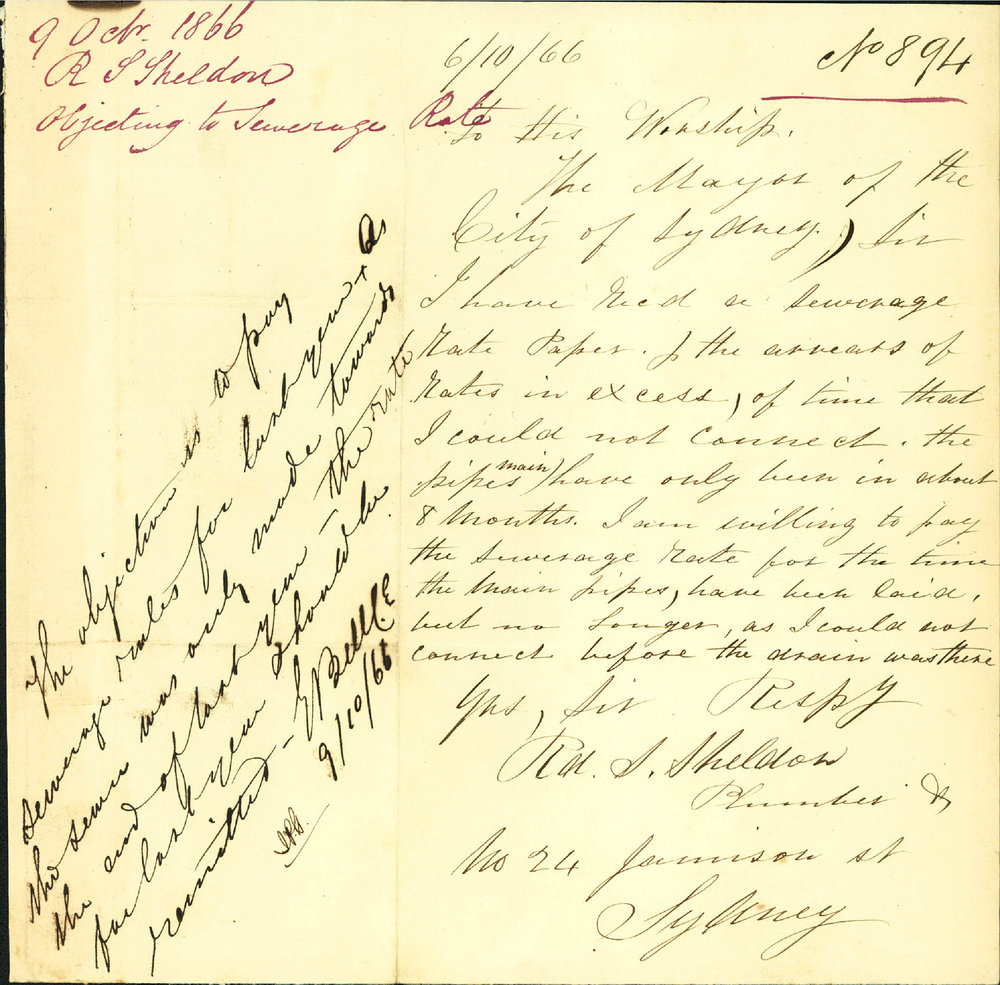 9 Octr. 1866
R S Sheldon
Objecting to Sewerage Rate
The objection is to pay
sewerage rates for last year & as
the sewer was only made towards
the end of last year - the rate
for last year should be
remitted - E Bell CE
9/10/66
No 894
6/10/66
To His Worship.
The Mayor of the
City of Sydney,) Sir
I have Recd a Sewerage
Rate Paper. & the arrears of
Rates in excess, of time that
I could not connect. the
pipes (main) have only been in about
8 Months. I am willing to pay
the Sewerage Rate for the time
the Main pipes, have been laid,
but no longer, as I could not
connect before the drain was there
Yrs, Sir Respy
Rd. S. Sheldon
Plumber &
No 24 Jamison st
Sydney